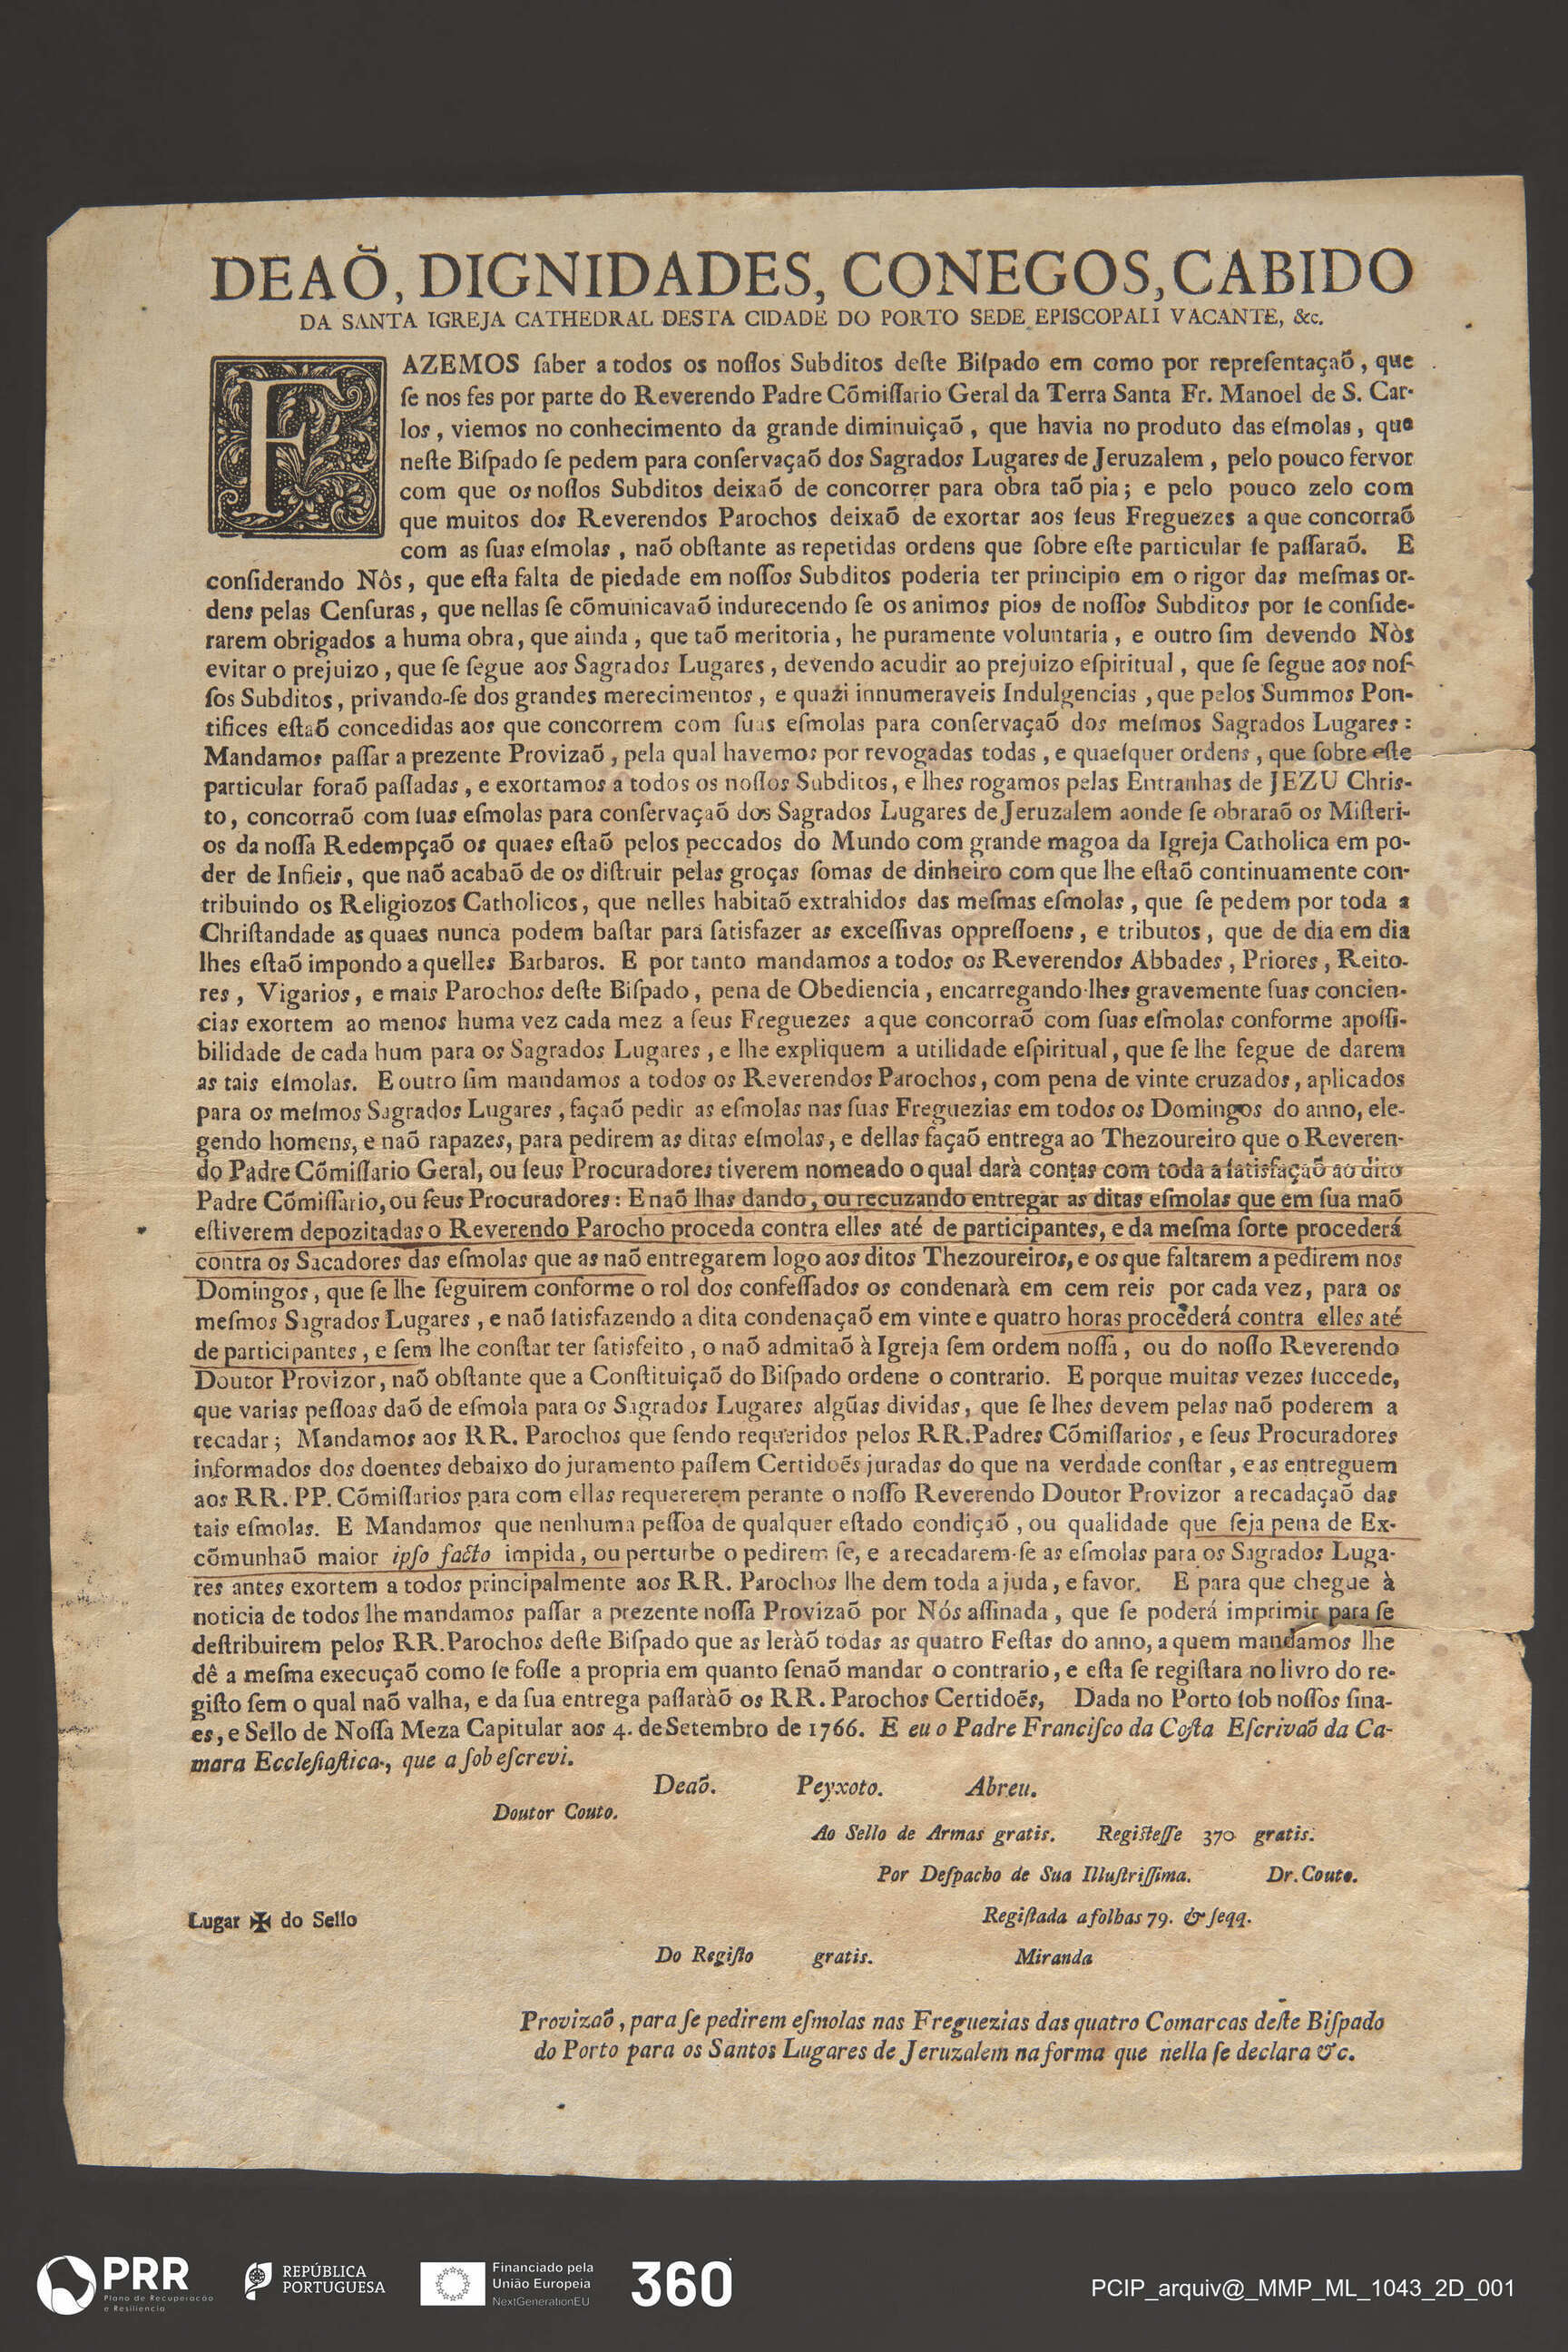 DEAÕ, DIGNIDADES, CONEGOS, CABIDO
DA SANTA IGREJA CATHEDRAL DESTA CIDADE DO PORTO SEDE EPISCOPALI VACANTE, &c.
FAZEMOS ſaber a todos os noſſos Subditos deſte Biſpado em como por repreſentaçaõ, que
ſe nos fes por parte do Reverendo Padre Cõmiſſario Geral da Terra Santa Fr. Manoel de S. Car-
los, viemos no conhecimento da grande diminuiçaõ, que havia no produto das eſmolas, que
neſte Biſpado ſe pedem para conſervaçaõ dos Sagrados Lugares de Jeruzalem, pelo pouco fervor
com que os noſſos Subditos deixaõ de concorrer para obra taõ pia; e pelo pouco zelo com
que muitos dos Reverendos Parochos deixaõ de exortar aos ſeus Freguezes a que concorraõ
com as ſuas eſmolas, naõ obſtante as repetidas ordens que ſobre eſte particular ſe paſſaraõ. E
conſiderando Nôs, que eſta falta de piedade em noſſos Subditos poderia ter principio em o rigor das meſmas or-
dens pelas Cenſuras, que nellas ſe cõmunicavaõ indurecendo ſe os animos pios de noſſos Subditos por ſe conſide-
rarem obrigados a huma obra, que ainda, que taõ meritoria, he puramente voluntaria, e outro ſim devendo Nòs
evitar o prejuizo, que ſe ſegue aos Sagrados Lugares, devendo acudir ao prejuizo eſpiritual, que ſe ſegue aos noſ-
ſos Subditos, privando-ſe dos grandes merecimentos, e quaži innumeraveis Indulgencias, que pelos Summos Pon-
tifices eſtaõ concedidas aos que concorrem com ſuas eſmolas para conſervaçaõ dos meſmos Sagrados Lugares:
Mandamos paſſar a prezente Provizaõ, pela qual havemos por revogadas todas, e quaeſquer ordens, que ſobre eſte
particular foraõ paſſadas, e exortamos a todos os noſſos Subditos, e lhes rogamos pelas Entranhas de JEZU Chris-
to, concorraõ com ſuas eſmolas para conſervaçaõ dos Sagrados Lugares de Jeruzalem aonde ſe obraraõ os Miſteri-
os da noſſa Redempçaõ os quaes eſtaõ pelos peccados do Mundo com grande magoa da Igreja Catholica em po-
der de Infieis, que naõ acabaõ de os diſtruir pelas groças ſomas de dinheiro com que lhe eſtaõ continuamente con-
tribuindo os Religiozos Catholicos, que nelles habitaõ extrahidos das meſmas eſmolas, que ſe pedem por toda a
Chriſtandade as quaes nunca podem baſtar para ſatisfazer as exceſſivas oppreſſoens, e tributos, que de dia em dia
lhes eſtaõ impondo a quelles Barbaros. E por tanto mandamos a todos os Reverendos Abbades, Priores, Reito-
res, Vigarios, e mais Parochos deſte Biſpado, pena de Obediencia, encarregando-lhes gravemente ſuas concien-
cias exortem ao menos huma vez cada mez a ſeus Freguezes a que concorraõ com ſuas eſmolas conforme apoſſi-
bilidade de cada hum para os Sagrados Lugares, e lhe expliquem a utilidade eſpiritual, que ſe lhe ſegue de darem
as tais eſmolas. E outro ſim mandamos a todos os Reverendos Parochos, com pena de vinte cruzados, aplicados
para os meſmos Sagrados Lugares, façaõ pedir as eſmolas nas ſuas Freguezias em todos os Domingos do anno, ele-
gendo homens, e naõ rapazes, para pedirem as ditas eſmolas, e dellas façaõ entrega ao Thezoureiro que o Reveren-
do Padre Cõmiſſario Geral, ou ſeus Procuradores tiverem nomeado o qual darà contas com toda a ſatisfaçaõ ao dito
Padre Cõmiſſario, ou ſeus Procuradores: E naõ lhas dando, ou recuzando entregar as ditas eſmolas que em ſua maõ
eſtiverem depozitadas o Reverendo Parocho proceda contra elles até de participantes, e da meſma ſorte procederá
contra os Sacadores das eſmolas que as naõ entregarem logo aos ditos Thezoureiros, e os que faltarem a pedirem nos
Domingos, que ſe lhe ſeguirem conforme o rol dos confeſſados os condenarà em cem reis por cada vez, para os
meſmos Sagrados Lugares, e naõ ſatisfazendo a dita condenaçaõ em vinte e quatro horas procederá contra elles até
de participantes, e ſem lhe conſtar ter ſatisfeito, o naõ admitaõ à Igreja ſem ordem noſſa, ou do noſſo Reverendo
Doutor Provizor, naõ obſtante que a Conſtituiçaõ do Biſpado ordene o contrario. E porque muitas vezes ſuccede,
que varias peſſoas daõ de eſmola para os Sagrados Lugares algũas dividas, que ſe lhes devem pelas naõ poderem a
recadar; Mandamos aos RR. Parochos que ſendo requeridos pelos RR. Padres Cõmiſſarios, e ſeus Procuradores
informados dos doentes debaixo do juramento paſſem Certidoẽs juradas do que na verdade conſtar, e as entreguem
aos RR. PP. Cõmiſſarios para com ellas requererem perante o noſſo Reverendo Doutor Provizor a recadaçaõ das
tais eſmolas. E Mandamos que nenhuma peſſoa de qualquer eſtado condiçaõ, ou qualidade que ſeja pena de Ex-
cõmunhaõ maior ipſo facto impida, ou perturbe o pedirem ſe, e a recadarem-ſe as eſmolas para os Sagrados Luga-
res antes exortem a todos principalmente aos RR. Parochos lhe dem toda a juda, e favor. E para que chegue à
noticia de todos lhe mandamos paſſar a prezente noſſa Provizaõ por Nós aſſinada, que ſe poderá imprimir para ſe
deſtribuirem pelos RR. Parochos deſte Biſpado que as leràõ todas as quatro Feſtas do anno, a quem mandamos lhe
dê a meſma execuçaõ como ſe foſſe a propria em quanto ſenaõ mandar o contrario, e eſta ſe regiſtara no livro do re-
giſto ſem o qual naõ valha, e da ſua entrega paſſaràõ os RR. Parochos Certidoẽs, Dada no Porto ſob noſſos ſina-
es, e Sello de Noſſa Meza Capitular aos 4. de Setembro de 1766. E eu o Padre Franciſco da Coſta Eſcrivaõ da Ca-
mara Eccleſiaſtica, que a ſob eſcrevi.
Deaõ. Peyxoto. Abreu.
Doutor Couto.
Ao Sello de Armas gratis. Regiſteſſe 370 gratis.
Por Deſpacho de Sua Illuſtriſſima. Dr. Couto.
Lugar ✠ do Sello
Regiſtada a folhas 79. & ſeqq.
Do Regiſto gratis. Miranda
Provizaõ, para ſe pedirem eſmolas nas Freguezias das quatro Comarcas deſte Biſpado
do Porto para os Santos Lugares de Jeruzalem na forma que nella ſe declara &c.
PRR
Plano de Recuperação
e Resiliência
REPÚBLICA
PORTUGUESA
Financiado pela
União Europeia
NextGenerationEU
360
PCIP_arquiv@_MMP_ML_1043_2D_001